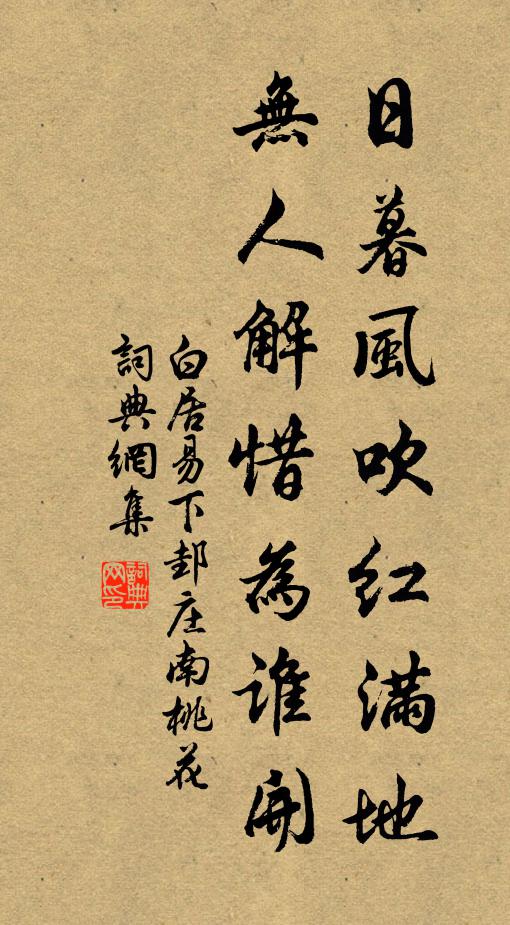 日暮風吹紅滿地
無人解惜為誰開
白居易下邽庄南桃花
詞典網集
詞典網印